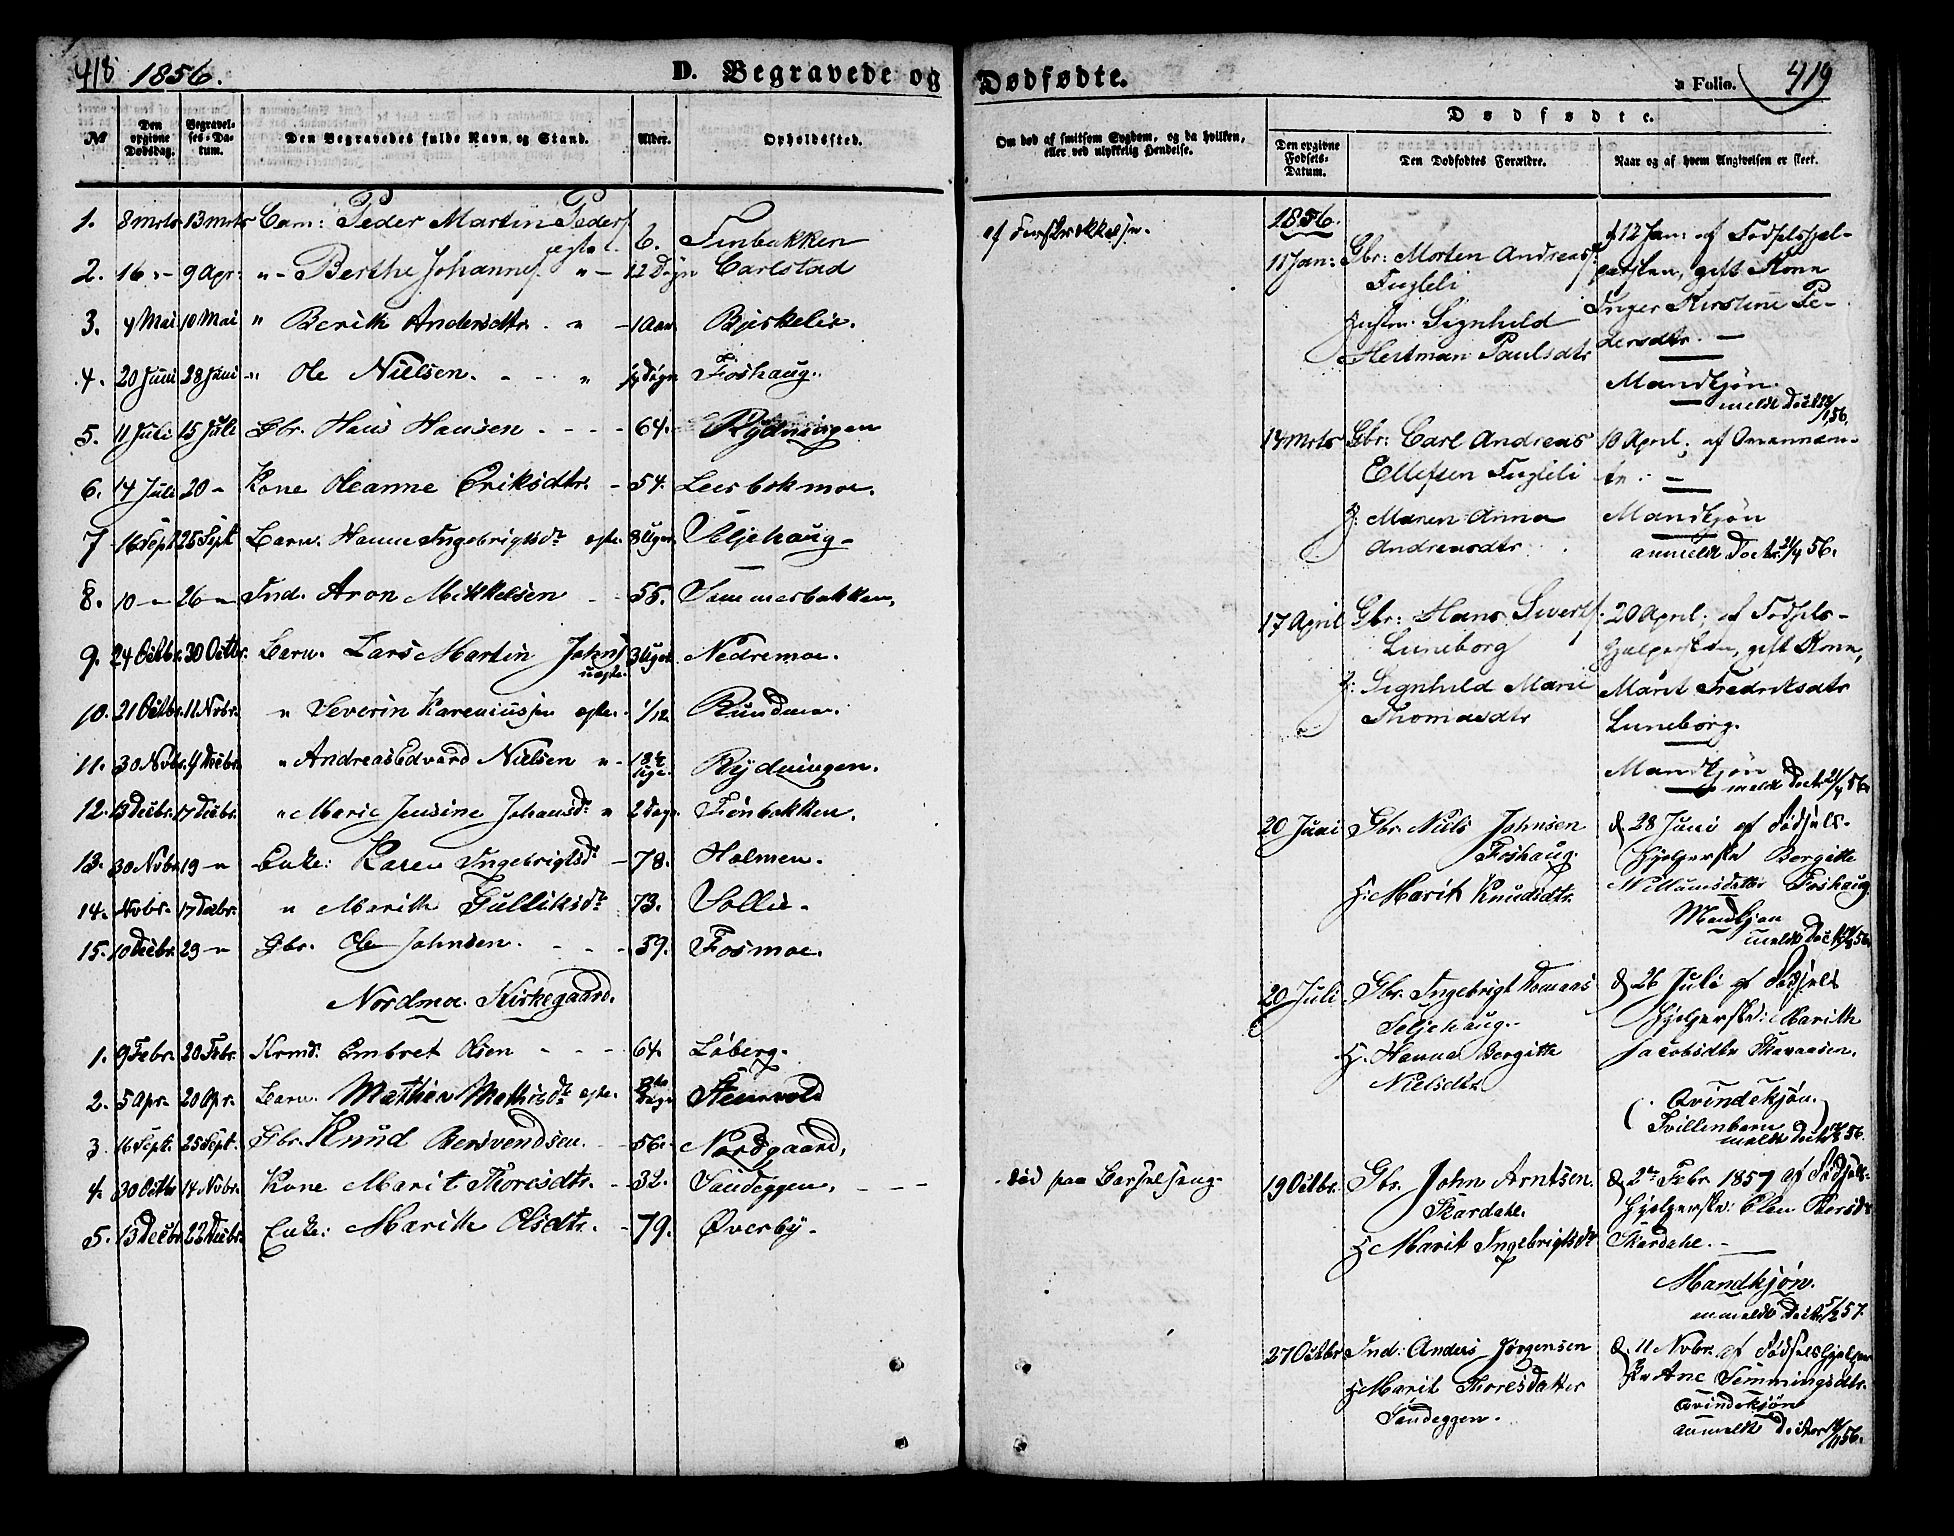 418 1856. D. Begravede og
No Den opgivne Dødsdag. Begravelses-Datum. Den Begravedes fulde Navn og Stand. Alder. Opholdssted.
1. 8 Mrts 13 Mrts Barn: Peder Martin Peders
ægte 6. Finbakken
2. 16 " - 9 Apr: " - Berthe Johannes " - 12 Dagr Carlstad
3. 4 Mai 10 Mai " Berith Andersdtr. " - 1 Aar Bjerkelie.
4. 20 Juni 28 Juni " Ole Nielsen. - - " Foshaug.
5. 11 Juli 15 Juli Gbr. Hans Hansen - - - 64. Rydningen
6. 14 Juli 20 - Kone Oleanne Eriksdtr. - 54. Leisbakmoe.
7 16 Sept 25 Sept Barn. Hanna Ingebrigtsdr ægte. 8 Uger. Seljehaug -
8. 10 - " 26 - " Ind. Aron Mikkelsen - - 55. Sommerbakken.
9. 24 Octbr. 30 Octbr. Barn. Lars Martin Johns
uægte. 3 Uger. Nedremoe.
10. 21 Octbr. 11 Nvbr. " Severin Kareniussen ægte. 1/12. Rundmoe.
11. 30 Nvbr. 9 Decbr. " Andreas Edvard Nielsen " - Uge. Rydningen.
12. 13 Decbr. 17 Decbr. " Marie Jensine Johansdr " 2 Dage Finbakken.
13. 30 Nvbr 19 - " Enke: Karen Ingebrigtsdr - 78. Holmen.
14. Nvbr. 17 Decbr. " Marith Gulliksdr - 73. Sollie -
15. 10 Decbr. 29 - " Gbr. Ole Johnsen. - - - 59. Fosmoe.
Nordmoe Kirkegaard.
1. 9 Febr. 20 Febr. Embret Olsen - - - 64. Løberg.
2. 5 Apr. 20 Apr. Barn. Mathea Mathisdr ægte. Dage Steinvold
3 16 Sept. 25 Sept. Gbr. Knud Bersvendsen. - 56. Nordgaard,
4. 30 Octbr 14 Nvbr. Kone Marit Thoresdtr. - 32. Sandeggen, - - -
5. 13 Decbr 22 Decbr. Enke: Marith Olsdtr. - 79. Øverby.
Dødfødte. Folio. 419
Om død af smitsom Sygdom, og da hvilken, eller ved ulykkelig Hendelse.
Dødfødte.
Den opgivne Fødsels-Datum. Den Dødfødtes Forældre. Naar og af hvem Angivelsen er skeet.
1856.
11 Jan: Gbr: Morten Andreas
Fugleli
Hustru: Signhild
Hertman Paulsdtr
12 Jan: af Fødselshjel-
persken, gift Kone
Inger Kirstine Pe-
dersdtr. -
Mandkjøn.
14 Mrts Gbr: Carl Andreas
Ellefsen Fugleli
H: Maren Anna
Andreasdtr
10 April; af
Mandkjøn
anmeldt Doct. 21/4 56.
17 April Gbr: Hans Siverts
Luneborg
H: Signhild Marie
Thomasdtr
20 April; af Fødsels-
hjelpersken, gift Kone,
Marit Fredriksdtr
Luneborg.
Mandkjøn
meldt Doct. 21/4 56.
20 Juni Gbr Niels Johnsen
Foshaug.
H: Marit Knudsdtr.
D. 28 Juni af Fødsels-
hjelperske Bergitte
Willumsdatter Foshaug
Mandkjøn
20 Juli Gbr. Ingebrigt Tomas
Seljehaug.
H. Hanna Bergitte
Nielsdtr
D. 26 Juli af Fødsels
hjelperske: Marith
Jacobsdtr
Qvindekjøn.
Tvillenbarn
død paa Barselseng. 19 Octbr. Gbr. John Arntsen.
Skardale.
H Marit Ingebrigtsdr
D. 2den Febr 1857 af Fødsels-
hjelperske: Elen
Skardale. -
Mandkjøn.
anmeldt Doct. 5/2 57.
27 Octbr Ind: Anders Jørgensen
H Marit Thoresdatter
Sandeggen.
D. 11 Nvbr. af Fødselshjelper
ske Ane Semmingsdtr.
Qvindekjøn
anmeldt Doctor 56.